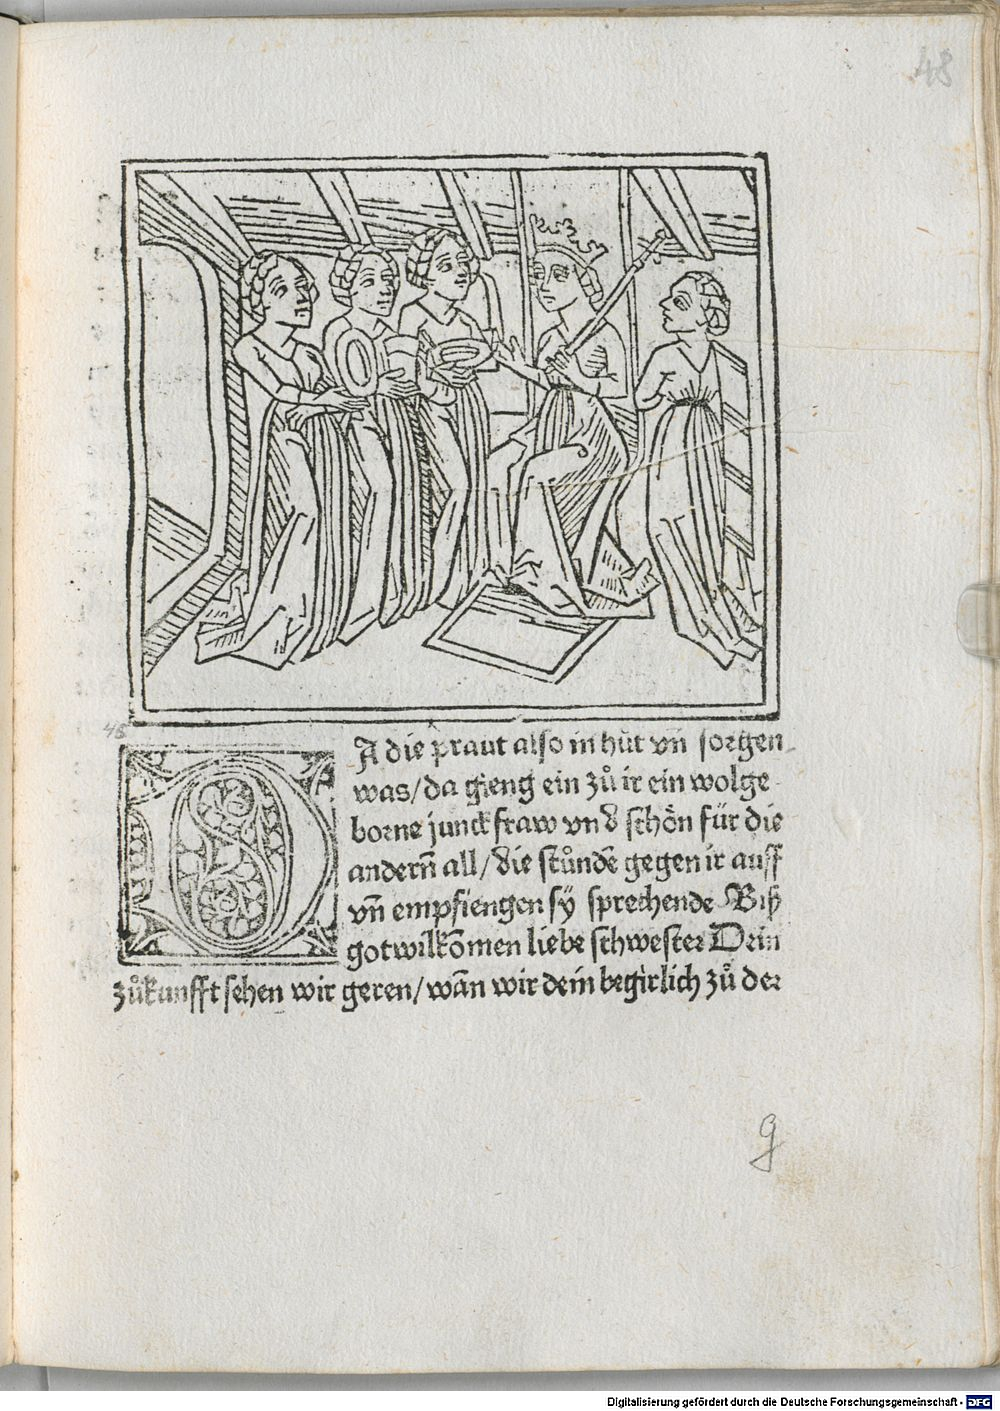 48
48
DA die praut also in hůt vn̄ sorgen
was/da gieng ein zů ir ein wolge
borne junckfraw vnd schön für die
andern̄ all/die stůndē gegen ir auff
vn̄ empfiengen sÿ sprechende Biß
gotwilkōmen liebe schwester Dein
zůkunfft sehen wir geren/wān wir dein begirlich zů der
g
Digitalisierung gefördert durch die Deutsche Forschungsgemeinschaft - DFG